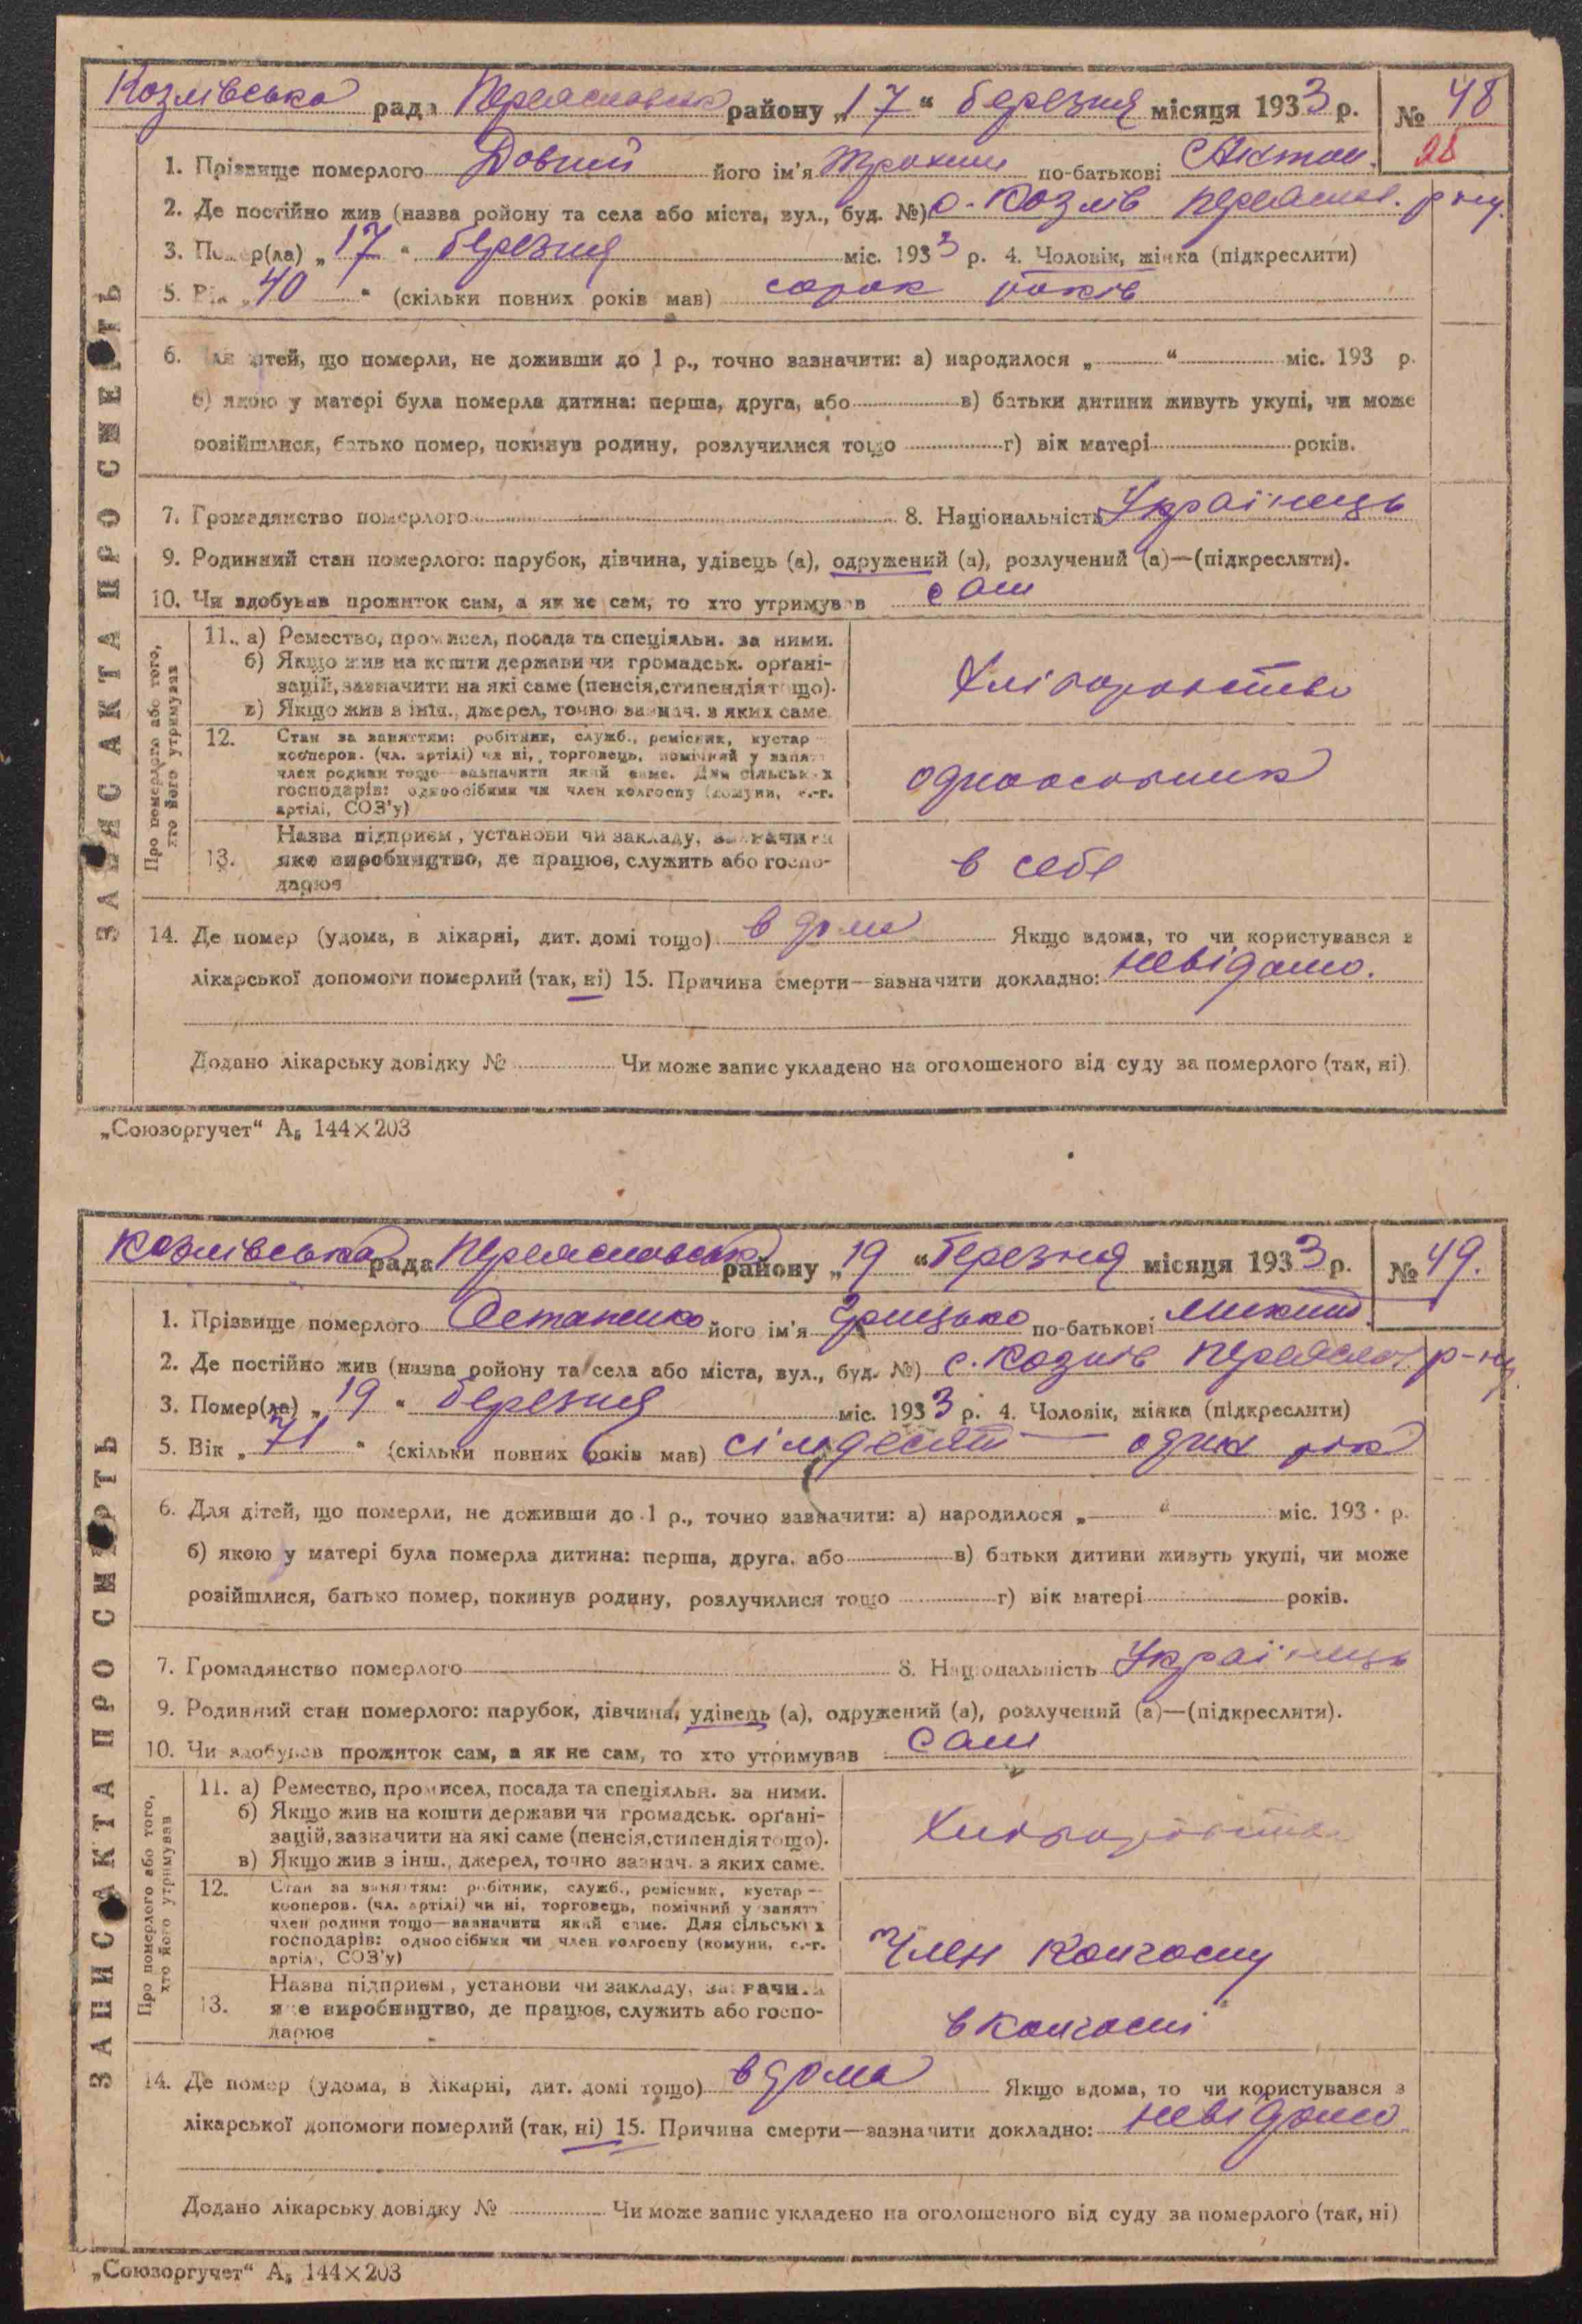 Козлівська рада Переяславськ району „17“ березня місяця 1933 р. № 48
28
1. Прізвище померлого Довгий його ім'я Трохим по-батькові
2. Де постійно жив (назва ройону та села або міста, вул., буд. №) с. Козлів Переяслав. р-ну.
3. Помер(ла) „17“ березня міс. 1933 р. 4. Чоловік, жінка (підкреслити)
5. Вік „40“ (скільки повних років мав) сорок років
6. Для дітей, що померли, не доживши до 1 р., точно зазначити: а) народилося „ “ міс. 193 р.
б) якою у матері була померла дитина: перша, друга, або в) батьки дитини живуть укупі, чи може
розійшлися, батько помер, покинув родину, розлучилися тощо г) вік матері років.
7. Громадянство померлого 8. Національність Українець
9. Родинний стан померлого: парубок, дівчина, удівець (а), одружений (а), розлучений (а)—(підкреслити).
10. Чи здобував прожиток сам, а як не сам, то хто утримував сам
Про померлого або того, хто його утримував
11. а) Ремество, промисел, посада та спеціяльн. за ними.
б) Якщо жив на кошти держави чи громадськ. орґані-
зацій, зазначити на які саме (пенсія, стипендія тощо).
в) Якщо жив з інш., джерел, точно зазнач. з яких саме.
Хліборобство
12. Стан за заняттям: робітник, служб., ремісник, кустар—
кооперов. (чл. артілі) чи ні, торговець, помічний у занятт
член родини тощо—зазначити який саме. Для сільських
господарів: одноосібник чи член колгоспу (комуни, с.-г.
артілі, СОЗ'у)
одноосібник
13. Назва підприєм, установи чи закладу, зазначити
яке виробництво, де працює, служить або госпо-
дарює
в себе
14. Де помер (удома, в лікарні, дит. домі тощо) в дома Якщо вдома, то чи користувався з
лікарської допомоги померлий (так, ні) 15. Причина смерти—зазначити докладно: невідомо.
Додано лікарську довідку № Чи може запис укладено на оголошеного від суду за померлого (так, ні)
ЗАПИС АКТА ПРО СМЕРТЬ
„Союзоргучет“ А₅ 144×203
Козлівська рада Переяславськ району „19“ березня місяця 1933 р. № 49.
1. Прізвище померлого Остапенко його ім'я Грицько по-батькові Микит.
2. Де постійно жив (назва ройону та села або міста, вул., буд. №) с. Козлів Переяслав р-ну
3. Помер(ла) „19“ березня міс. 1933 р. 4. Чоловік, жінка (підкреслити)
5. Вік „71“ (скільки повних років мав) сімдесят один рік
6. Для дітей, що померли, не доживши до 1 р., точно зазначити: а) народилося „ “ міс. 193 р.
б) якою у матері була померла дитина: перша, друга, або в) батьки дитини живуть укупі, чи може
розійшлися, батько помер, покинув родину, розлучилися тощо г) вік матері років.
7. Громадянство померлого 8. Національність Українець
9. Родинний стан померлого: парубок, дівчина, удівець (а), одружений (а), розлучений (а)—(підкреслити).
10. Чи здобував прожиток сам, а як не сам, то хто утримував сам
Про померлого або того, хто його утримував
11. а) Ремество, промисел, посада та спеціяльн. за ними.
б) Якщо жив на кошти держави чи громадськ. орґані-
зацій, зазначити на які саме (пенсія, стипендія тощо).
в) Якщо жив з інш., джерел, точно зазнач. з яких саме.
Хліборобство
12. Стан за заняттям: робітник, служб., ремісник, кустар—
кооперов. (чл. артілі) чи ні, торговець, помічний у занятт
член родини тощо—зазначити який саме. Для сільських
господарів: одноосібник чи член колгоспу (комуни, с.-г.
артілі, СОЗ'у)
Член Колгоспу
13. Назва підприєм, установи чи закладу, зазначити
яке виробництво, де працює, служить або госпо-
дарює
в колгоспі
14. Де помер (удома, в лікарні, дит. домі тощо) вдома Якщо вдома, то чи користувався з
лікарської допомоги померлий (так, ні) 15. Причина смерти—зазначити докладно: невідомо
Додано лікарську довідку № Чи може запис укладено на оголошеного від суду за померлого (так, ні)
ЗАПИС АКТА ПРО СМЕРТЬ
„Союзоргучет“ А₅ 144×203